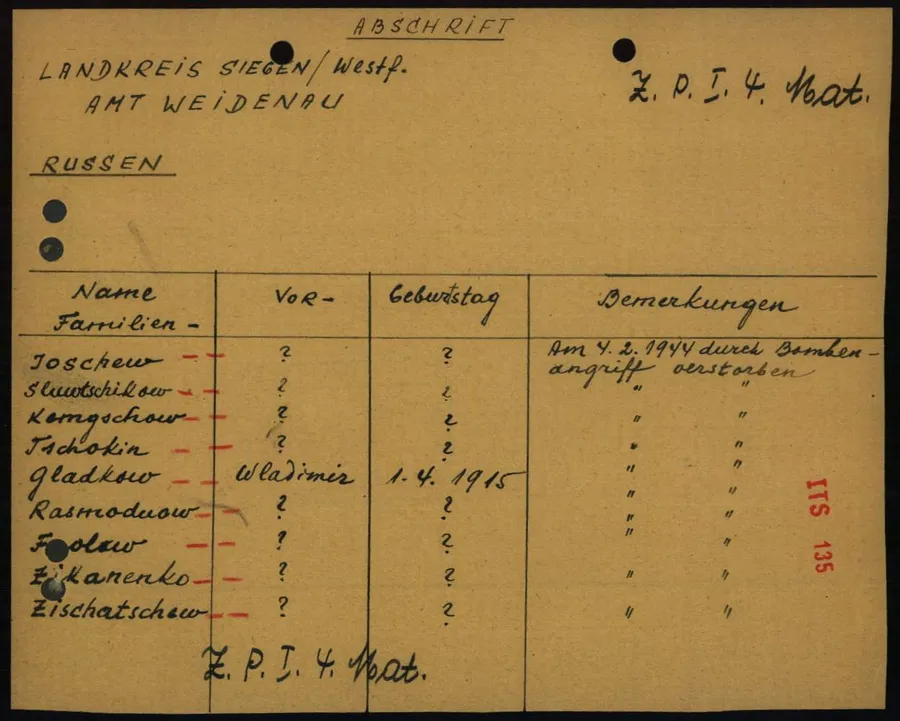 ABSCHRIFT
LANDKREIS SIEGEN/Westf.
AMT WEIDENAU
Z. P. I. 4. Mat.
RUSSEN
Name Familien - VOR - Geburtstag Bemerkungen
Joschew -- ? ? Am 4. 2. 1944 durch Bomben-
angriff verstorben
Sluwtschikow -- ? ? " "
Kemgschow -- ? ? " "
Tschokin -- ? ? " "
Gladkow -- Wladimir 1. 4. 1915 " "
Rasmoduow -- ? ? " "
-- ? ? " "
Zikanenko -- ? ? " "
Zischatschew -- ? ? " "
ITS 135
Z. P. I. 4. Mat.